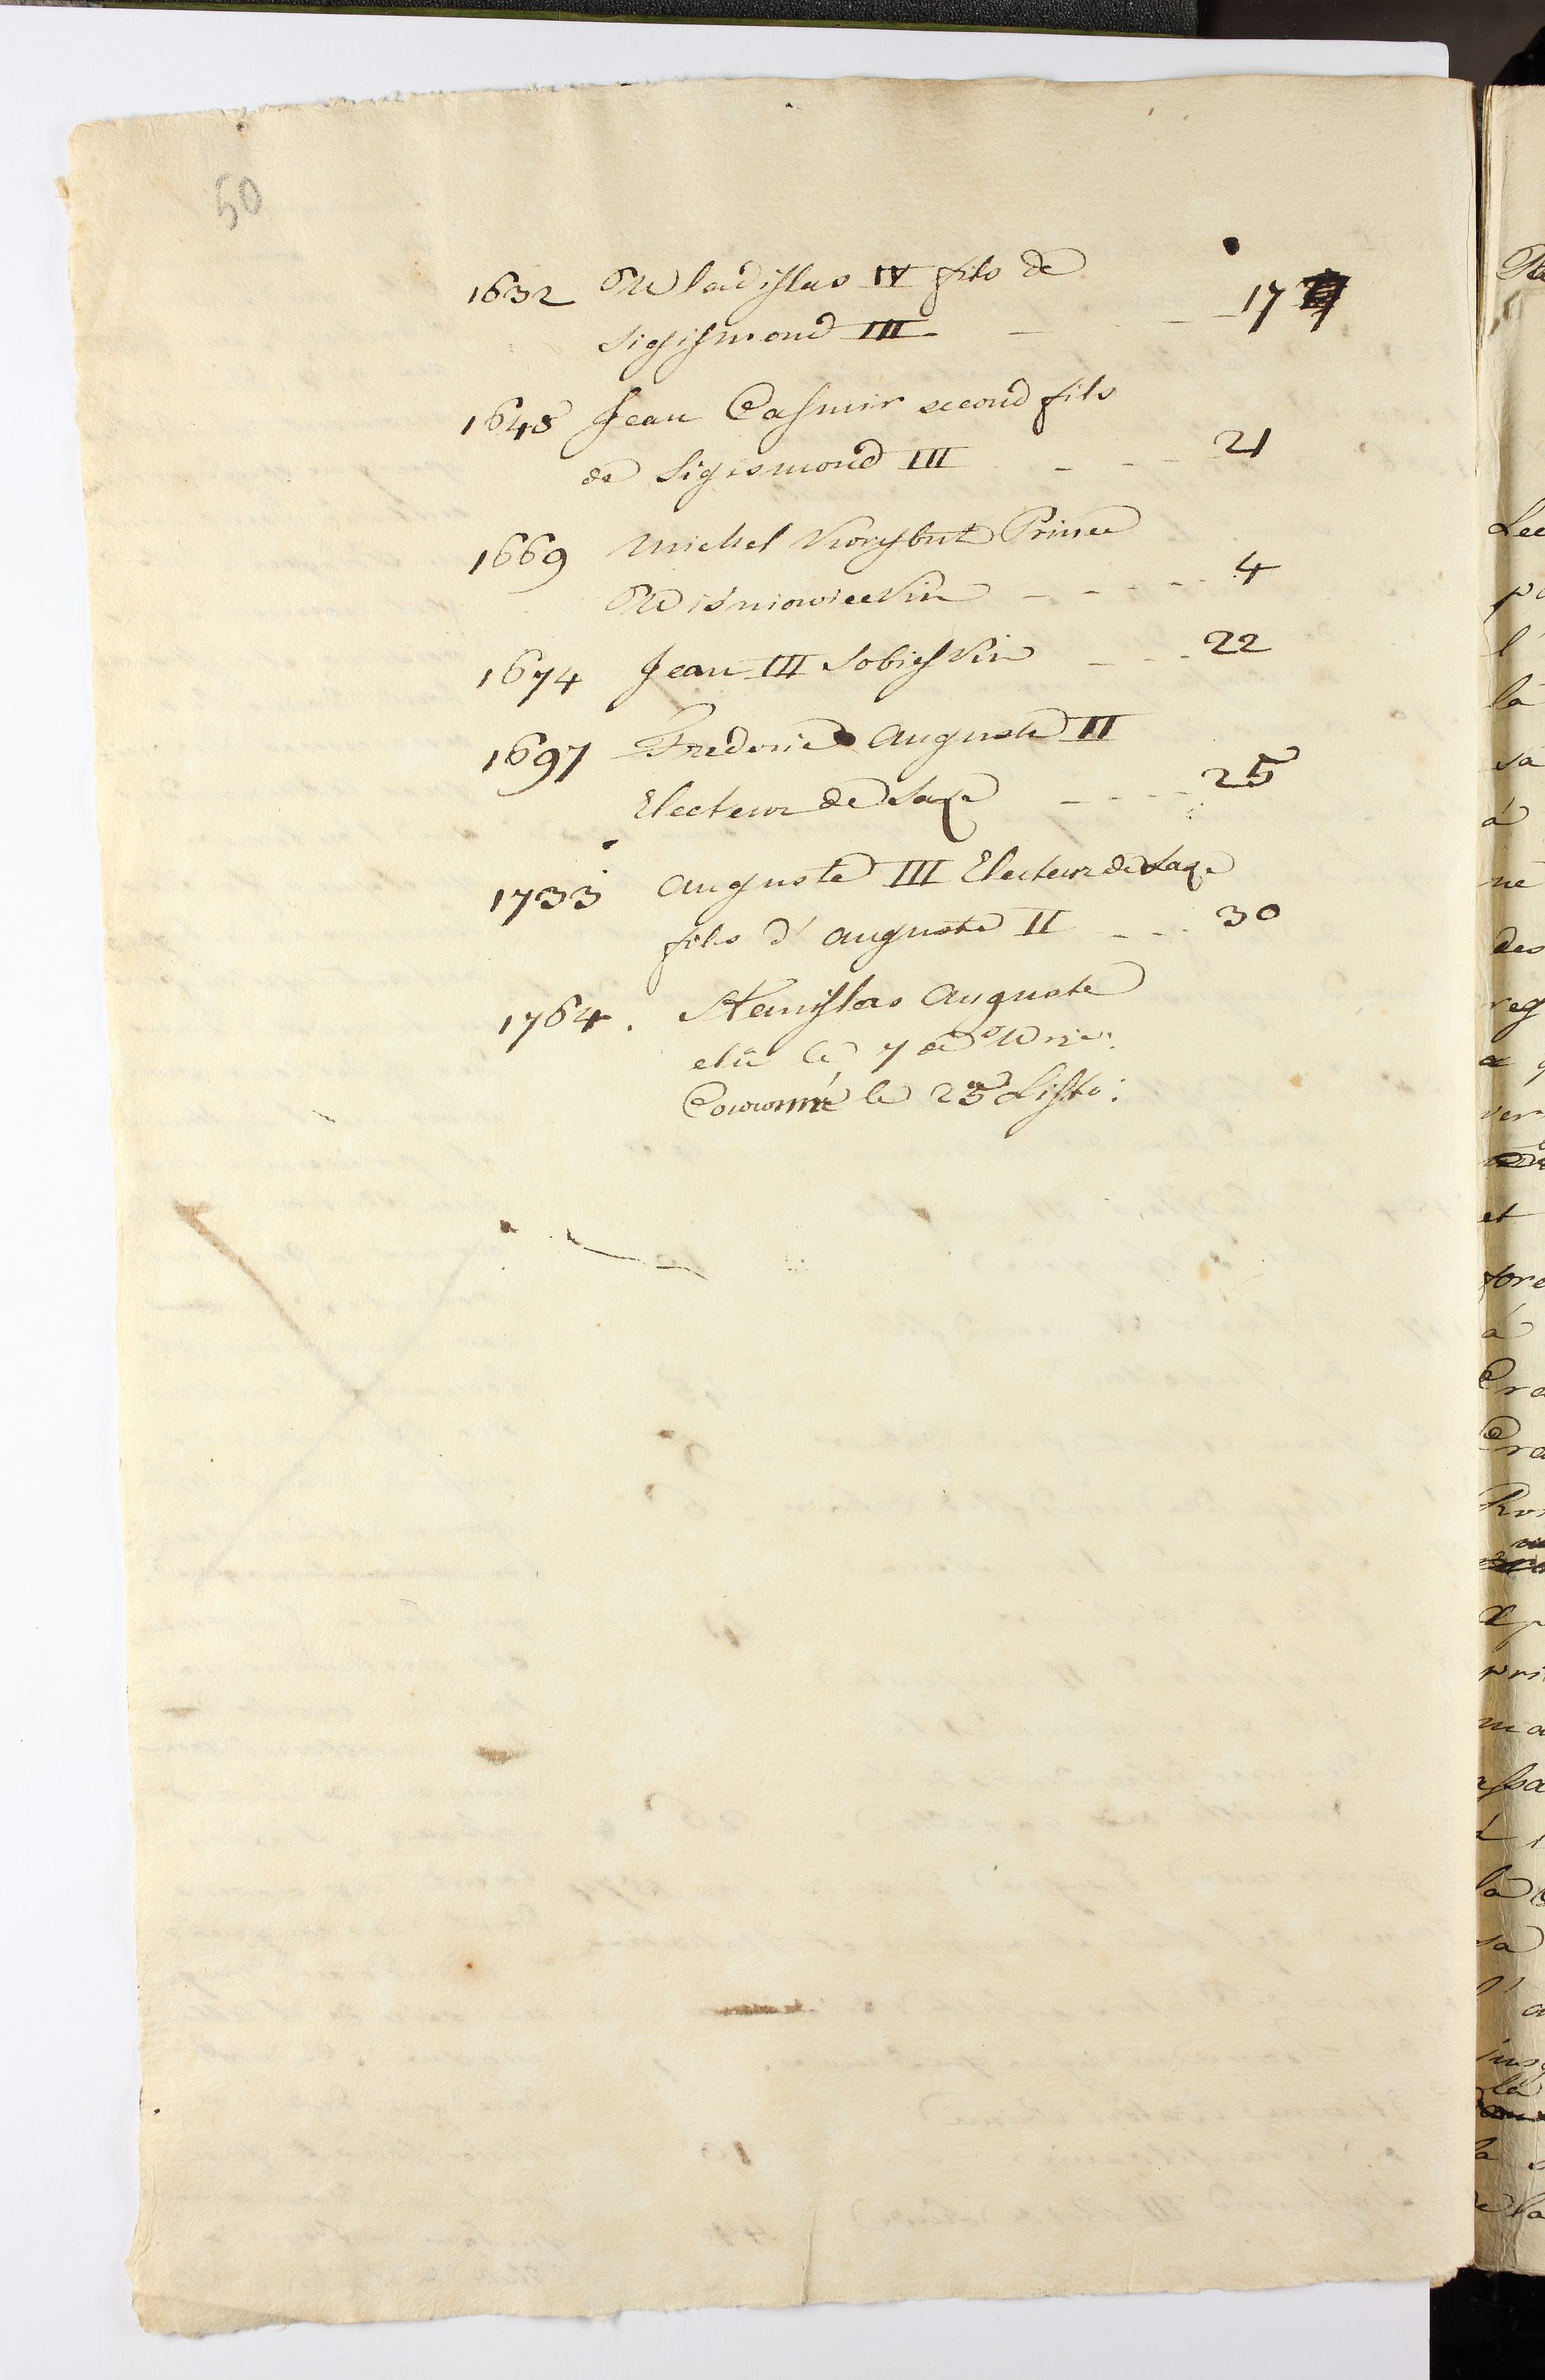 50
1632 Wladislas IV fils de
Sigismond III - - - 17
1648 Jean Casimir second fils
de Sigismond III - - - 21
1669 Michel Korybut Prince
Wiśniowiecki - - - - 4
1674 Jean III Sobieski - - - 22
1697 Frederic Auguste II
Electeur de Saxe - - - - 25
1733 Auguste III Electeur de Saxe
fils d'Auguste II - - - 30
1764. Stanislas Auguste
elû le 7 de Wrze:
Couronné le 25 Listo: